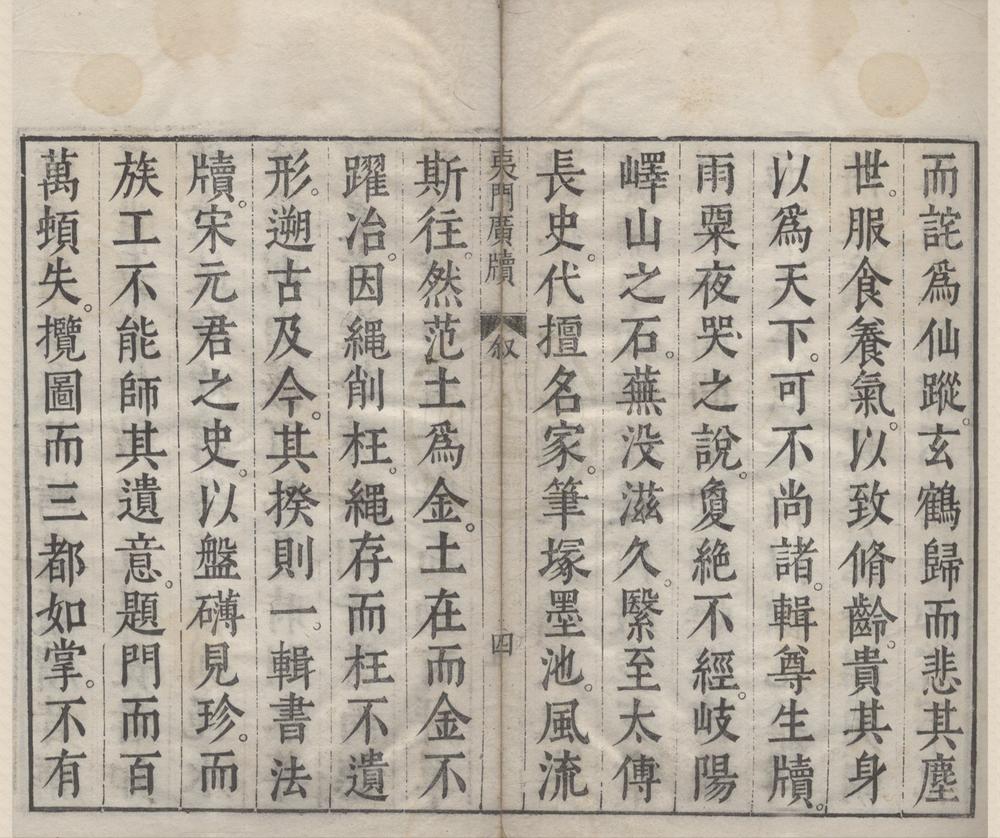 而詫為仙蹤。玄鶴歸而悲其塵
世。服食養氣。以致脩齡。貴其身
以為天下。可不尚諸。輯尊生牘。
雨粟夜哭之說。敻絶不經。岐陽
嶧山之石。蕪没滋久。繄至太傅
長史。代擅名家。筆塚墨池。風流
夷門廣牘 叙 四
斯往。然范土為金。土在而金不
躍冶。因繩削枉。繩存而枉不遺
形。遡古及今。其揆則一。輯書法
牘。宋元君之史。以盤礴見珍。而
族工不能師其遺意。題門而百
萬頓失。攬圖而三都如掌。不有